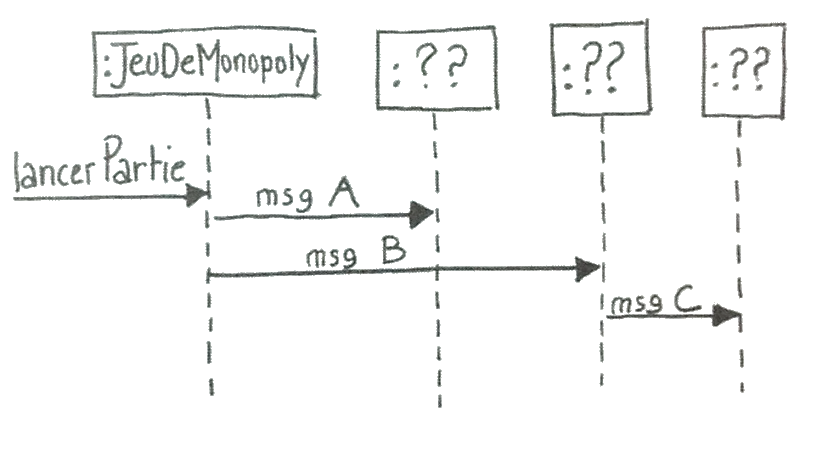 :JeuDeMonopoly
:??
:??
:??
lancerPartie
msg A
msg B
msg C